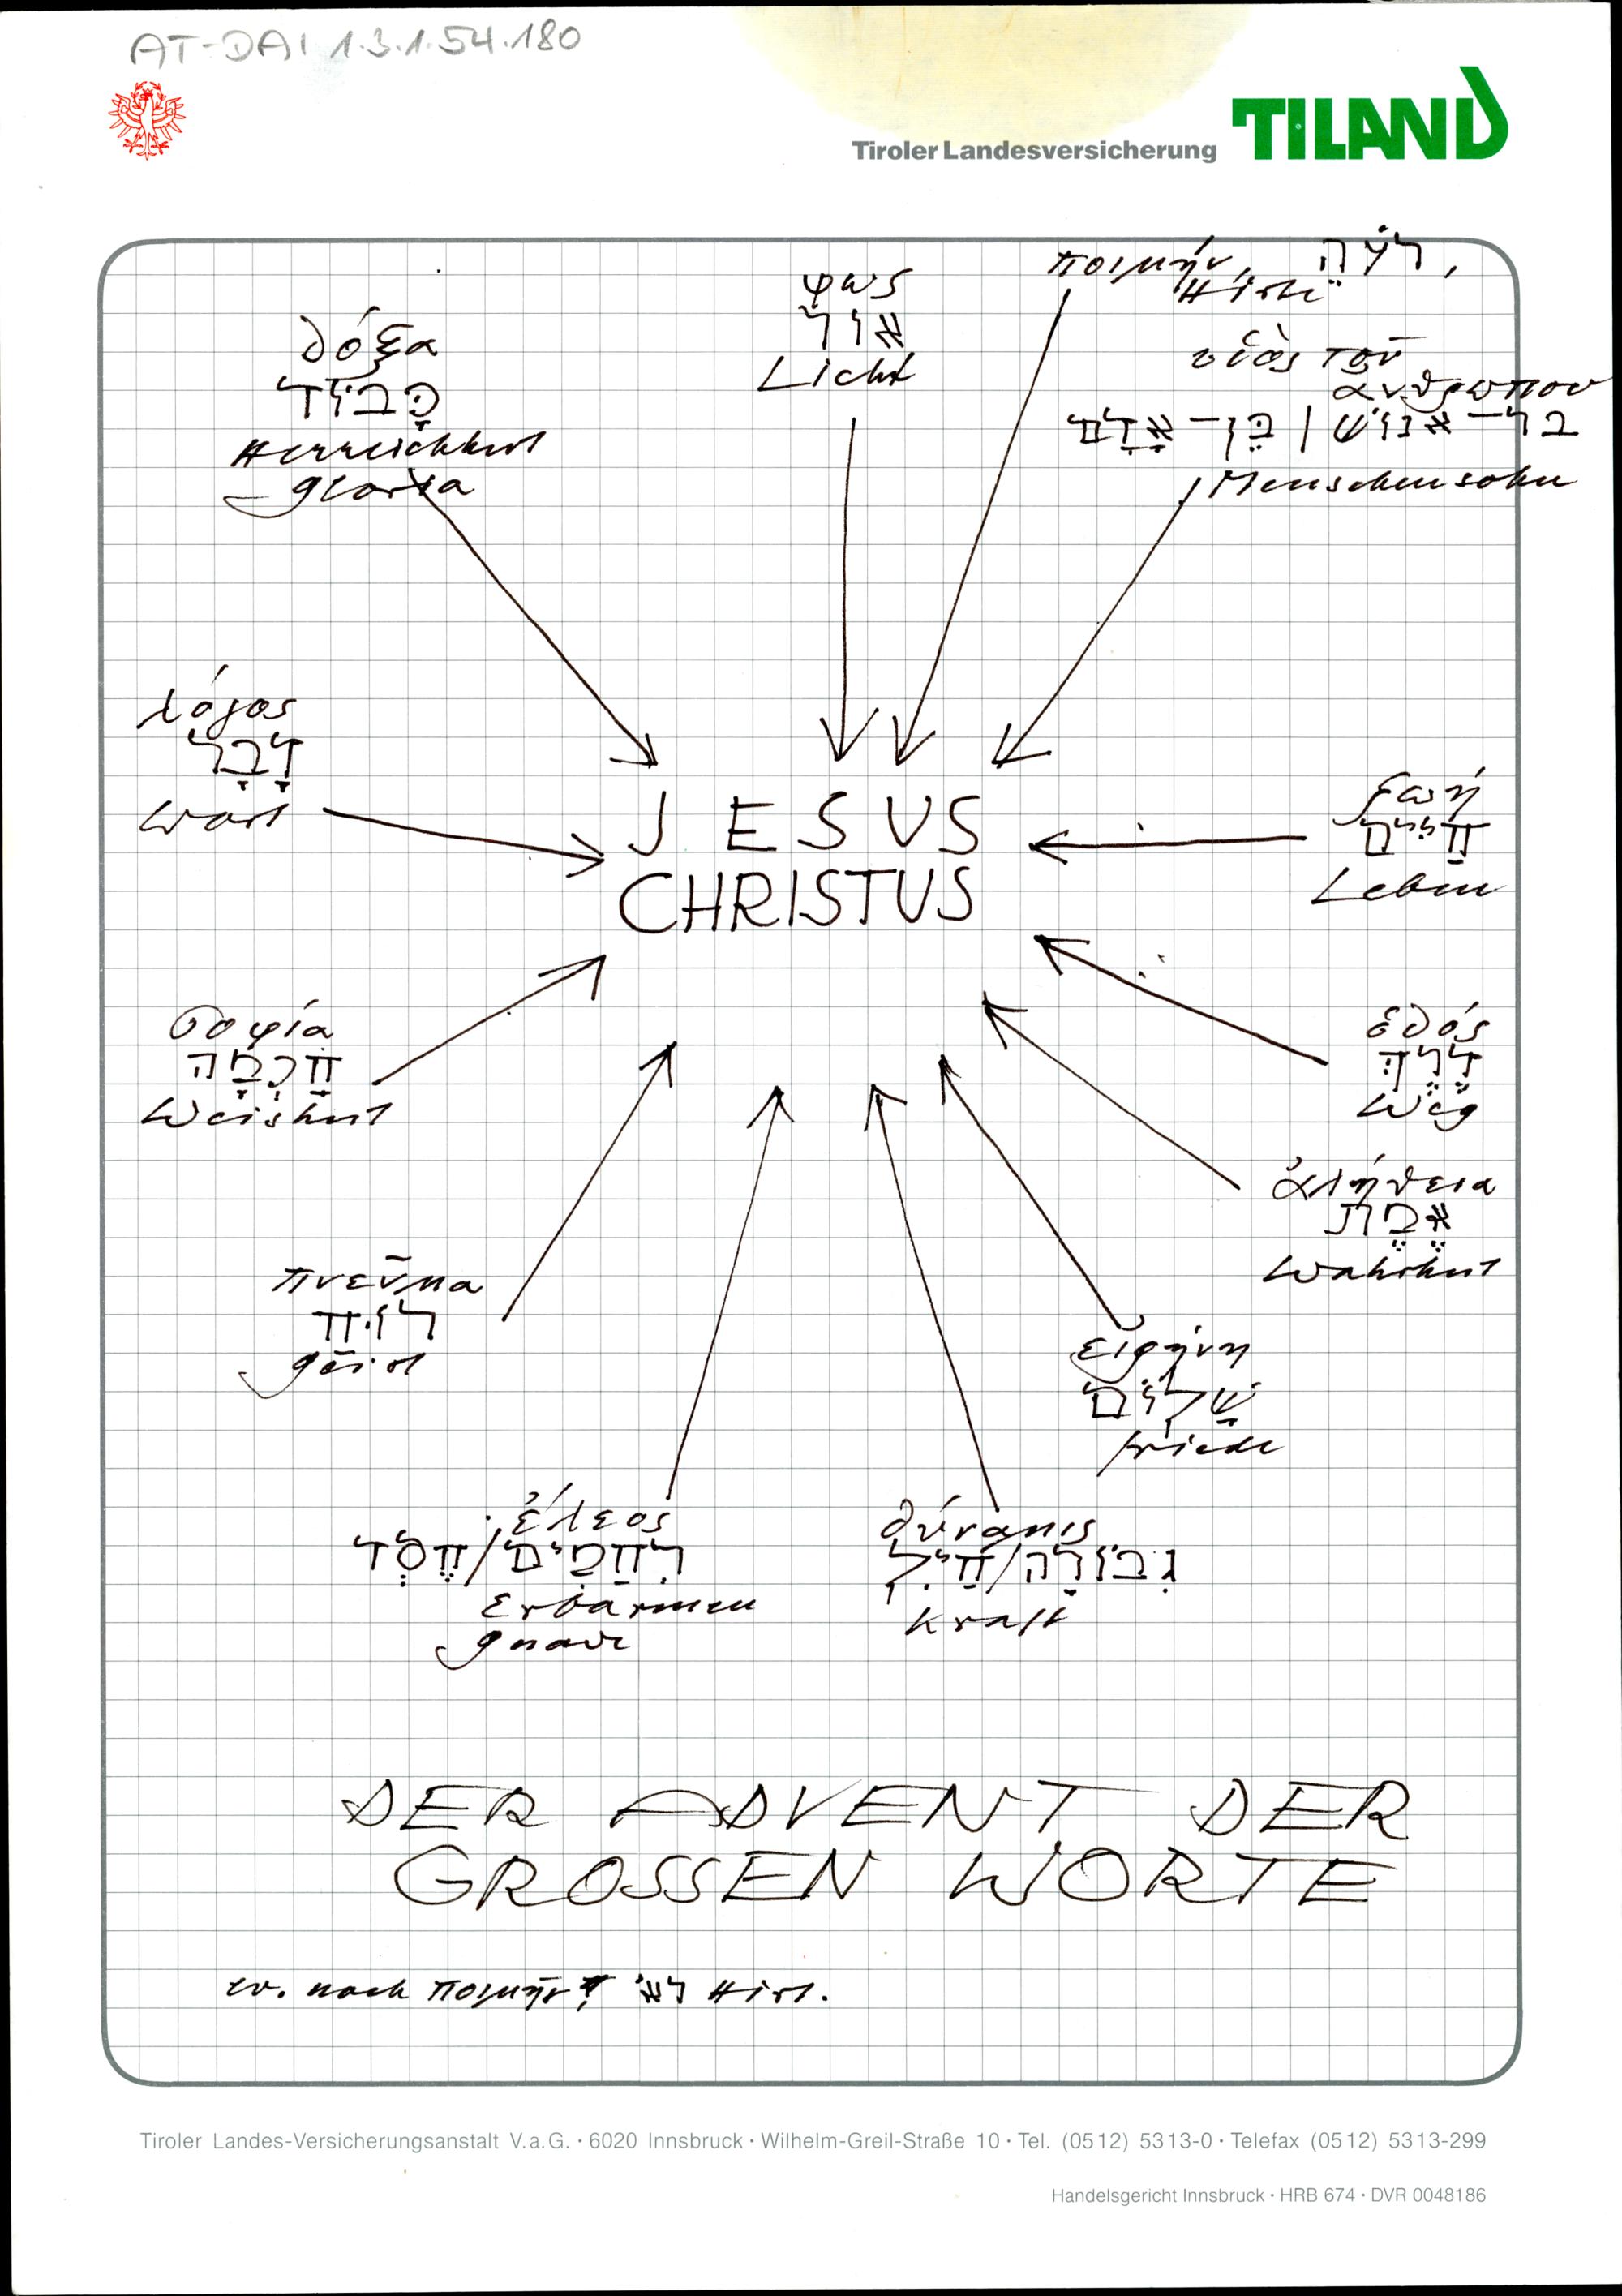 AT-DAI 1.3.1.54.180
Tiroler Landesversicherung TILAND
ποιμήν, רֹעֶה,
Hirte
φως
אור
Licht
δόξα
כָּבוֹד
Herrlichkeit
gloria
υἱὸς τοῦ
ανθρωπου
בר־אנוֹשׁ / בֶּן־אָדָם
Menschensohn
λόγος
דָבָר
Wort
JESUS
CHRISTUS
ζωή
חַיִּים
Leben
σοφία
חָכְמָה
Weisheit
ὁδός
דֶּרֶךְ
Weg
ἀλήθεια
אֱמֶת
Wahrheit
πνεῦμα
רוּחַ
geist
εἰρήνη
שָׁלוֹם
friede
ἔλεος
רַחֲמִים/חֶסֶד
Erbarmen
gnade
δύναμις
גְבוּרָה/חַיִל
Kraft
DER ADVENT DER
GROSSEN WORTE
ev. noch ποιμήν Hirt.
Tiroler Landes-Versicherungsanstalt V.a.G. · 6020 Innsbruck · Wilhelm-Greil-Straße 10 · Tel. (0512) 5313-0 · Telefax (0512) 5313-299
Handelsgericht Innsbruck · HRB 674 · DVR 0048186